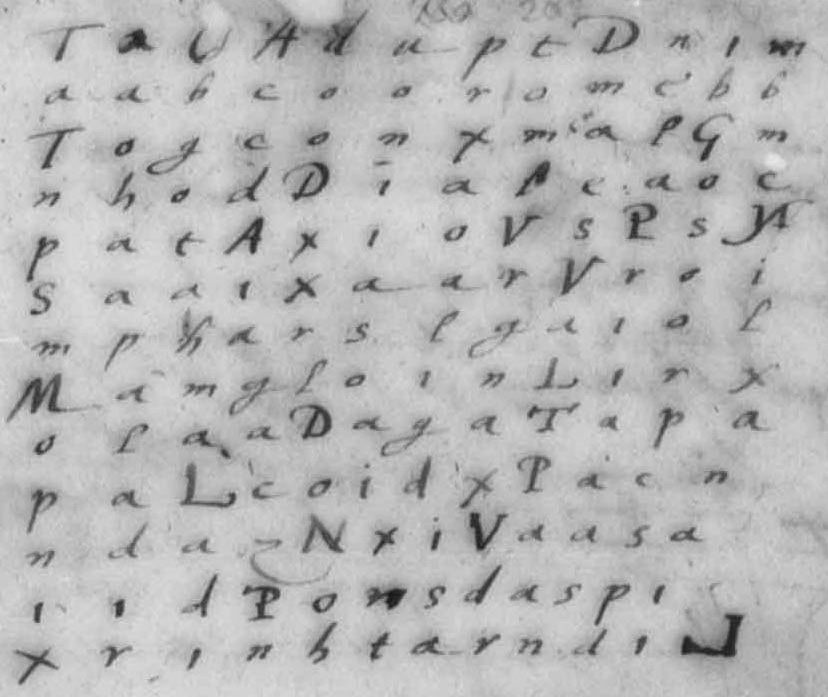 T a U A d u p t D n i m
a a b c o o r o m e b b
T o g c o n x m a l G m
n h o d D i a l e a o c
p a t A x i o V s P s N
S a a i x a a r V r o i
m p h a r s l g a i o l
M a m g l o i n L i r x
o l a a D a g a T a p a
p a L c o i d x P a c n
n d a z N x i V a a s a
i i d P o n s d a s p i
x r i n h t a r n d i